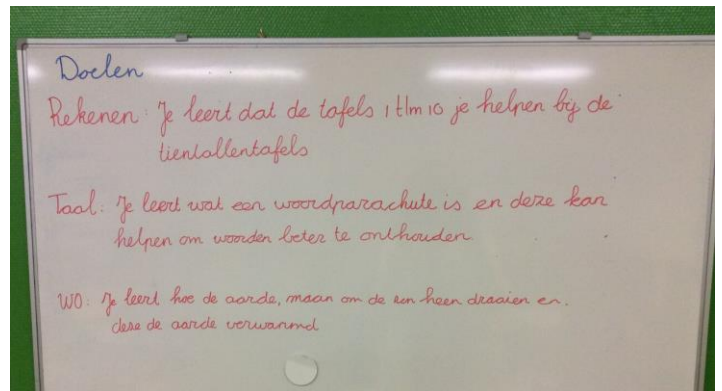 Doelen
Rekenen: Je leert dat de tafels 1 t/m 10 je helpen bij de
tientallentafels
Taal: Je leert wat een woordparachute is en deze kan
helpen om woorden beter te onthouden.
WO: Je leert hoe de aarde, maan om de zon heen draaien en.
deze de aarde verwarmd